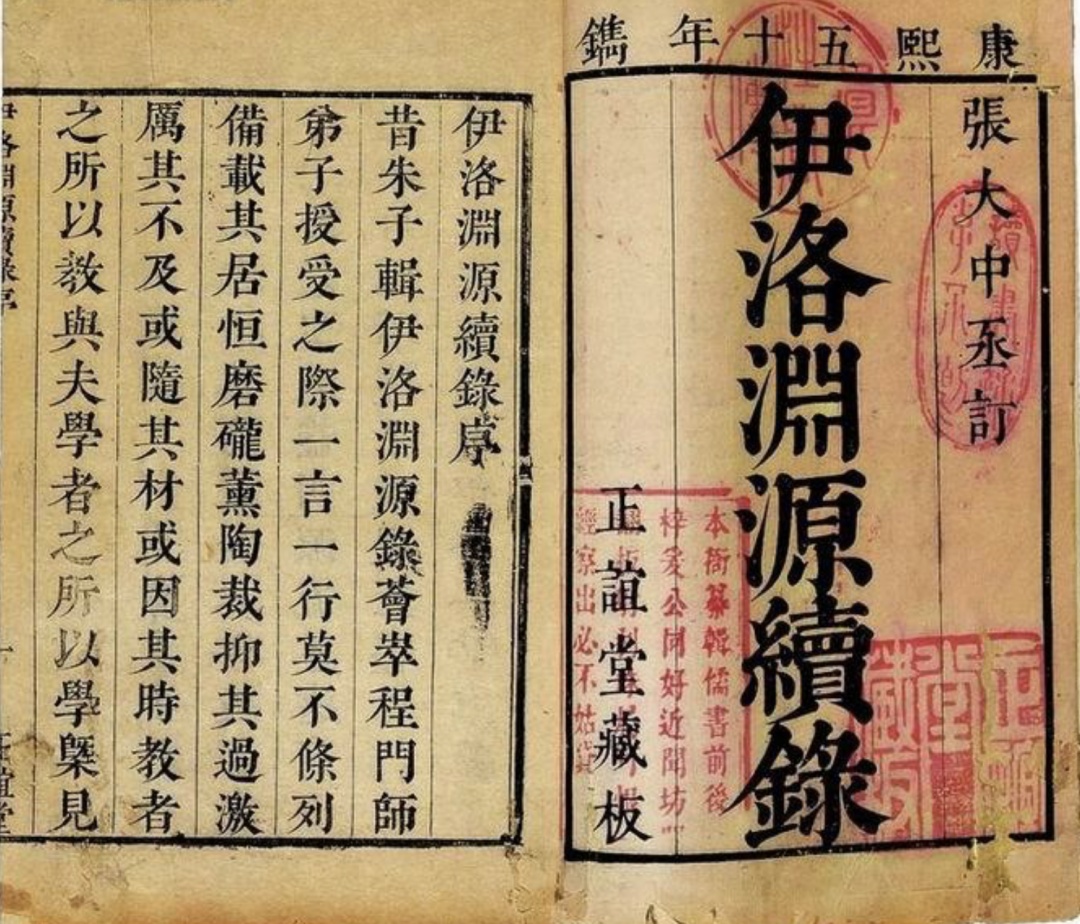 康熙五十年鐫
張大中丞訂
伊洛淵源續錄
正誼堂藏板
本衙纂輯儒書前後
梓爰公同好近聞坊
經察出必不姑貸
正誼
堂
藏板
伊洛淵源續錄序
昔朱子輯伊洛淵源錄薈萃程門師
弟子授受之際一言一行莫不條列
備載其居恒磨礲薰陶裁抑其過激
厲其不及或隨其材或因其時教者
之所以教與夫學者之所以學槩見
伊洛淵源續錄序
一
正誼堂